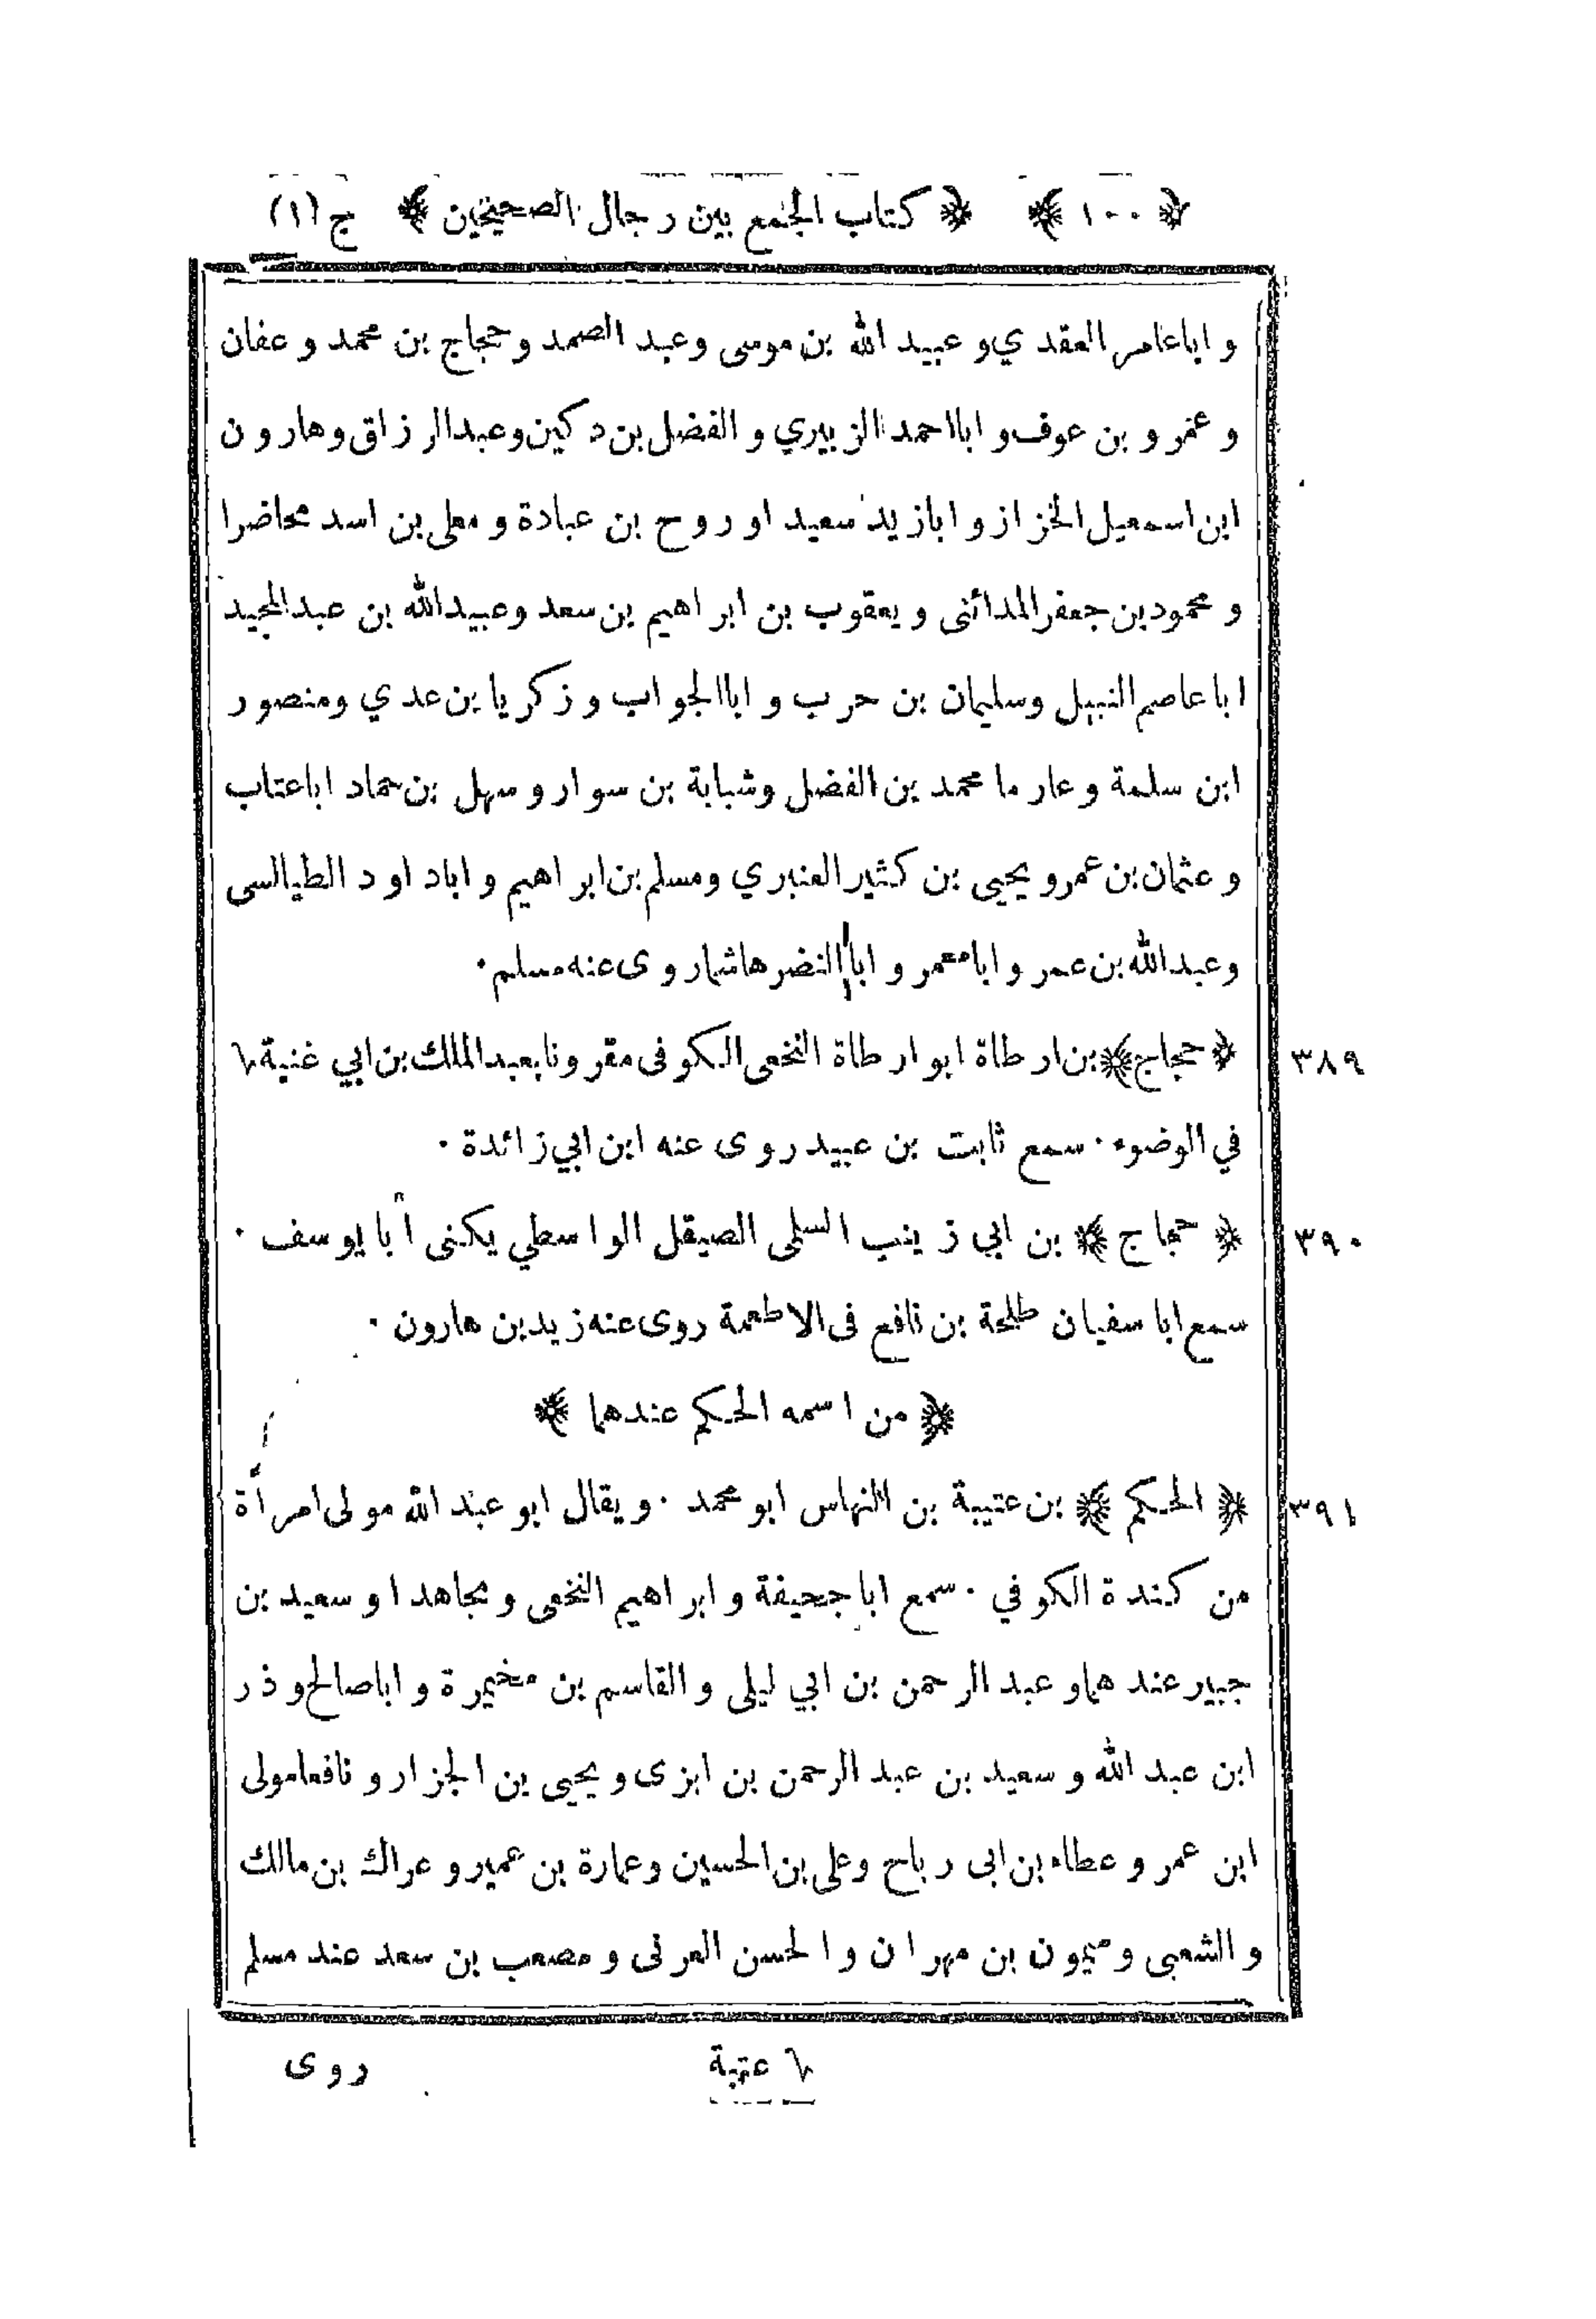 ﴿١٠٠﴾ ﴿كتاب الجمع بين رجال الصحيحين﴾ ج (١)
و اباعامر العقدي و عبيد الله بن موسى وعبد الصمد و حجاج بن محمد و عفان
و عمرو بن عوف و ابااحمد الزبيري و الفضل بن دكين وعبدالرزاق وهارون
ابن اسمعيل الخزاز و ابازيد سعيد او روح بن عبادة و معلى بن اسد محاضرا
و محمود بن جعفر المدائنى و يعقوب بن ابراهيم بن سعد وعبيدالله بن عبدالمجيد
اباعاصم النبيل وسليمان بن حرب و اباالجواب و زكريا بن عدي ومنصور
ابن سلمة وعارما محمد بن الفضل وشبابة بن سوار و سهل بن حماد اباعتاب
و عثمان بن عمرو يحيى بن كثير العنبري ومسلم بن ابراهيم و اباداود الطيالسى
وعبدالله بن عمر و ابامعمر و اباالنضر هاشما روى عنه مسلم٠
٣٨٩ ﴿حجاج﴾ بن ارطاة ابو ارطاة النخعى الكوفى مقرونا بعبدالملك بن ابي غنية٦
في الوضوء٠ سمع ثابت بن عبيد روى عنه ابن ابي زائدة٠
٣٩٠ ﴿حجاج﴾ بن ابي زينب السلمى الصيقل الواسطي يكنى أبا يوسف٠
سمع ابا سفيان طلحة بن نافع فى الاطعمة روى عنه زيد بن هارون٠
﴿من اسمه الحكم عندهما﴾
٣٩١ ﴿الحكم﴾ بن عتيبة بن النهاس ابو محمد٠ ويقال ابو عبد الله مولى امرأة
من كندة الكوفي٠ سمع اباجحيفة و ابراهيم النخعى و مجاهدا و سعيد بن
جبير عندهما و عبد الرحمن بن ابي ليلى و القاسم بن مخيمرة و اباصالح و ذر
ابن عبد الله و سعيد بن عبد الرحمن بن ابزى و يحيى بن الجزار و نافعامولى
ابن عمر و عطاء بن ابى رباح وعلى بن الحسين وعمارة بن عمير و عراك بن مالك
و الشعبى و ميمون بن مهران و الحسن العرنى و مصعب بن سعد عند مسلم
٦ عتبة
روى